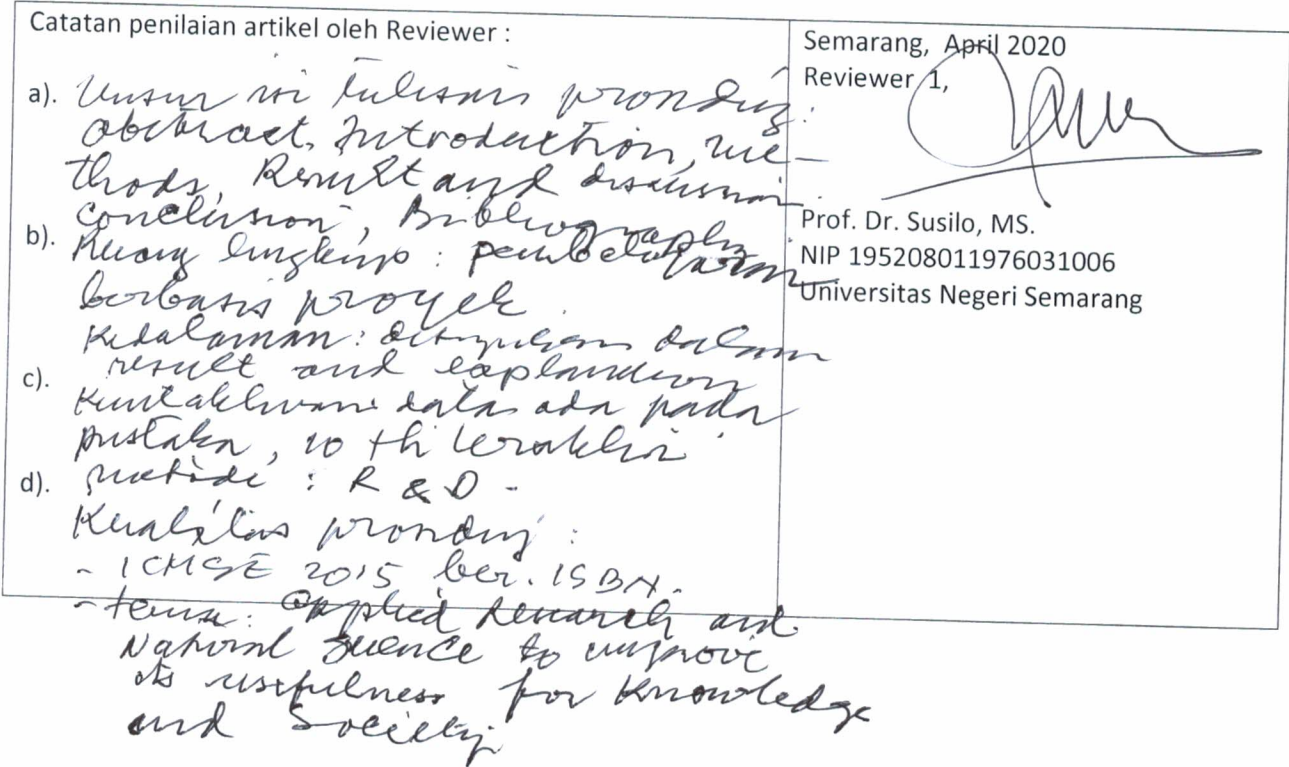 Catatan penilaian artikel oleh Reviewer :
a). Unsur isi tulisan prosiding:
abstract, Introduction, me-
thods, Result and discussion
conclusion, Bibliography.
b). Ruang lingkup : pembelajaran
berbasis proyek.
Kedalaman: disajikan dalam
result and explanation
c). Kemutakhiran data ada pada
pustaka, 10 th terakhir
d). metode : R & D -
Kualitas prosiding :
- ICMSE 2015 ber. ISBN.
- tema: Applied Research and
Natural Science to improve
its usefulness for Knowledge
and Society
Semarang, April 2020
Reviewer 1,
Prof. Dr. Susilo, MS.
NIP 195208011976031006
Universitas Negeri Semarang